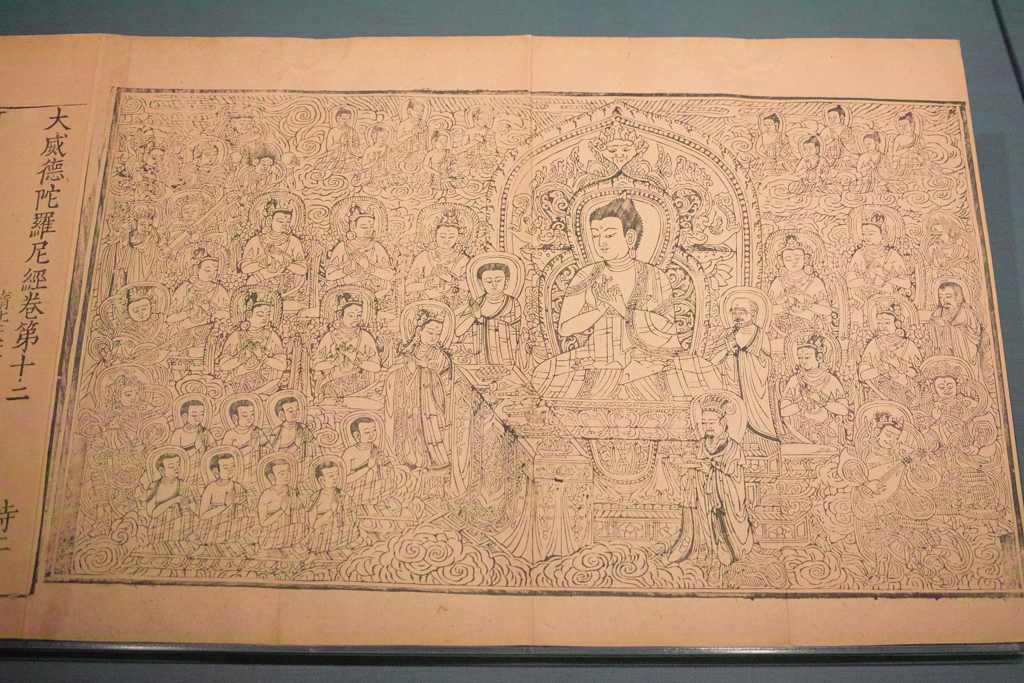 大威德陀羅尼經卷第十二